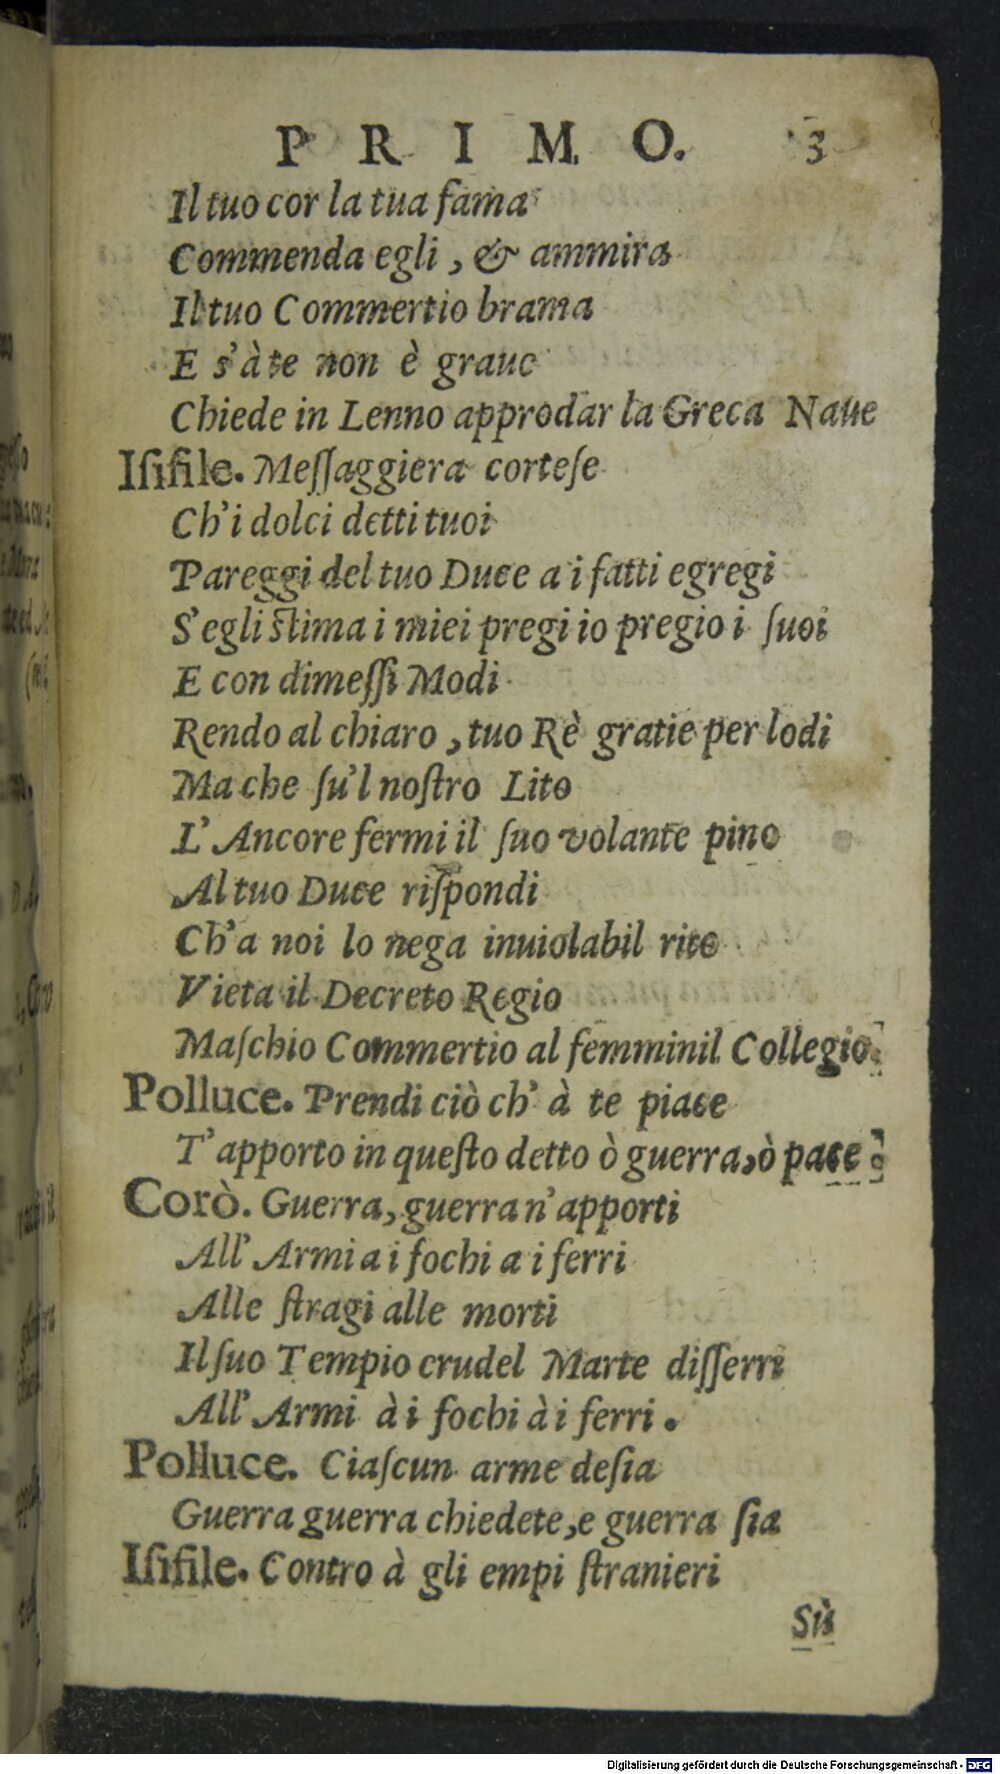 PRIMO. 3
Il tuo cor la tua fama
Commenda egli, & ammira
Il tuo Commertio brama
E s'à te non è graue
Chiede in Lenno approdar la Greca Naue
Iſifile. Meſſaggiera corteſe
Ch'i dolci detti tuoi
Pareggi del tuo Duce a i fatti egregi
S'egli ſtima i miei pregi io pregio i ſuoi
E con dimeſſi Modi
Rendo al chiaro, tuo Rè gratie per lodi
Ma che ſu'l noſtro Lito
L'Ancore fermi il ſuo volante pino
Al tuo Duce riſpondi
Ch'a noi lo nega inuiolabil rito
Vieta il Decreto Regio
Maſchio Commertio al femminil Collegio.
Polluce. Prendi ciò ch'à te piace
T'apporto in queſto detto ò guerra, ò pace
Corò. Guerra, guerra n'apporti
All'Armi a i fochi a i ferri
Alle ſtragi alle morti
Il ſuo Tempio crudel Marte diſſerri
All'Armi à i fochi à i ferri.
Polluce. Ciaſcun arme deſia
Guerra guerra chiedete, e guerra ſia
Iſifile. Contro à gli empi ſtranieri
Sù
Digitalisierung gefördert durch die Deutsche Forschungsgemeinschaft - DFG